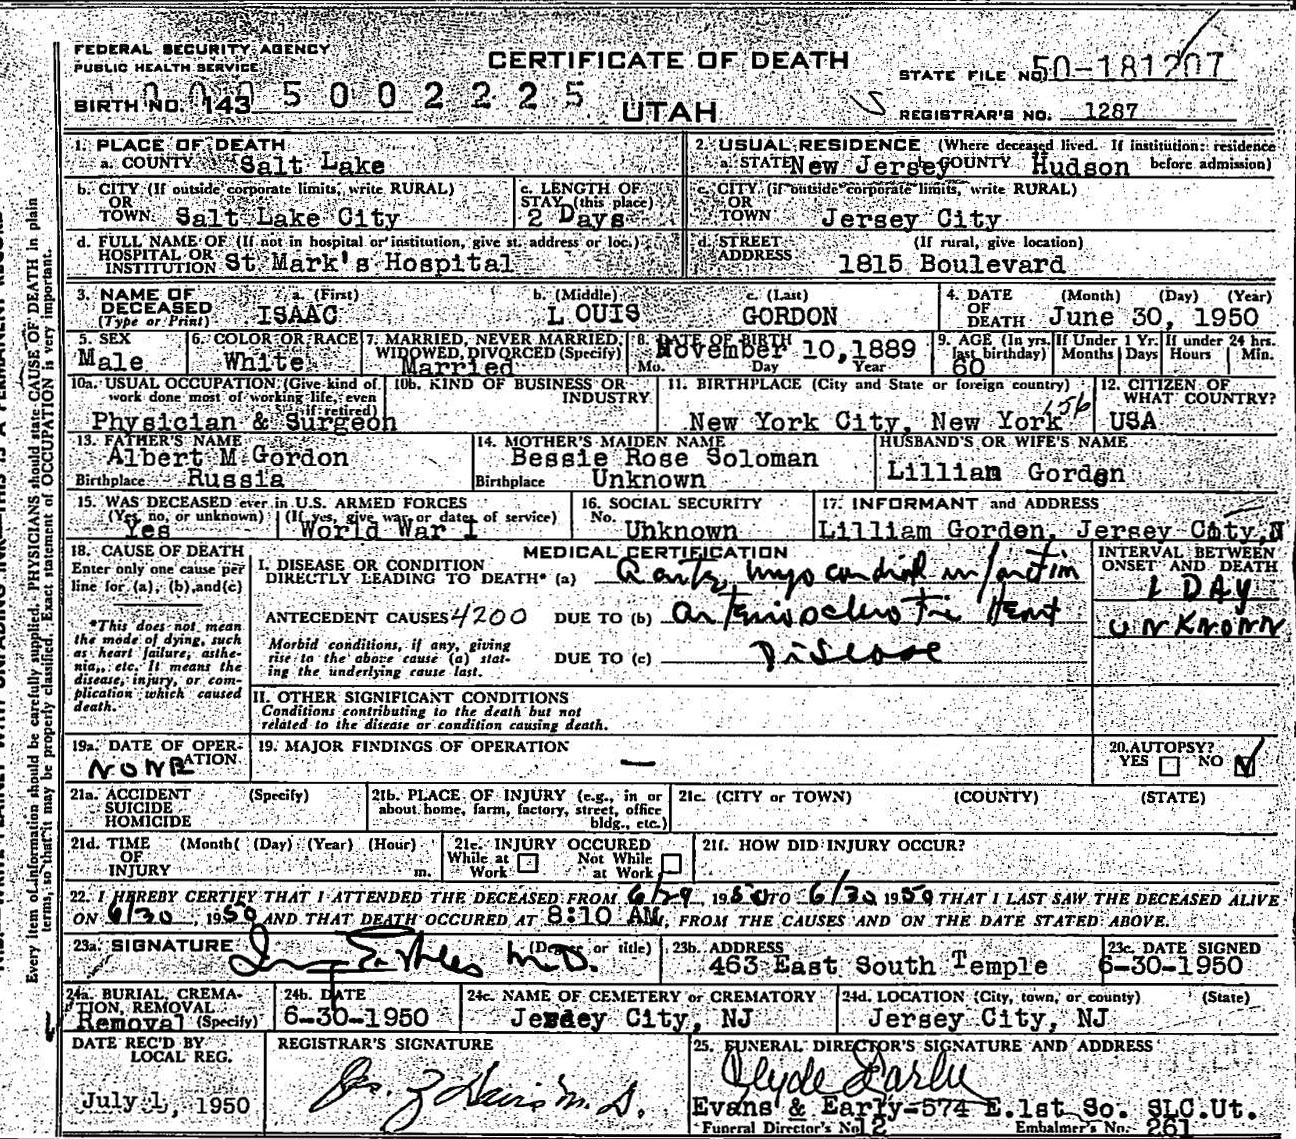 FEDERAL SECURITY AGENCY
PUBLIC HEALTH SERVICE
CERTIFICATE OF DEATH
STATE FILE NO. 50-181207
BIRTH NO. 143 5 0 0 2 2 2 5
UTAH
REGISTRAR'S NO. 1287
1. PLACE OF DEATH
a. COUNTY Salt Lake
2. USUAL RESIDENCE (Where deceased lived. If institution: residence before admission)
a. STATE New Jersey COUNTY Hudson
b. CITY (If outside corporate limits, write RURAL)
OR
TOWN Salt Lake City
c. LENGTH OF
STAY (this place)
2 Days
c. CITY (if outside corporate limits, write RURAL)
OR
TOWN Jersey City
d. FULL NAME OF (If not in hospital or institution, give st. address or loc.)
HOSPITAL OR
INSTITUTION St Mark's Hospital
d. STREET (If rural, give location)
ADDRESS
1815 Boulevard
3. NAME OF
DECEASED
(Type or Print)
a. (First)
ISAAC
b. (Middle)
LOUIS
c. (Last)
GORDON
4. DATE (Month) (Day) (Year)
OF
DEATH June 30, 1950
5. SEX
Male
6. COLOR OR RACE
White
7. MARRIED, NEVER MARRIED,
WIDOWED, DIVORCED (Specify)
Married
8. DATE OF BIRTH
November 10,1889
Mo. Day Year
9. AGE (In yrs.
last birthday)
60
If Under 1 Yr.
Months Days
If under 24 hrs.
Hours Min.
10a. USUAL OCCUPATION (Give kind of
work done most of working life, even
if retired)
Physician & Surgeon
10b. KIND OF BUSINESS OR
INDUSTRY
11. BIRTHPLACE (City and State or foreign country)
New York City, New York 156
12. CITIZEN OF
WHAT COUNTRY?
USA
13. FATHER'S NAME
Albert M Gordon
Birthplace Russia
14. MOTHER'S MAIDEN NAME
Bessie Rose Soloman
Birthplace Unknown
HUSBAND'S OR WIFE'S NAME
Lilliam Gorden
15. WAS DECEASED ever in U.S. ARMED FORCES
(Yes, no, or unknown) (If yes, give war or dates of service)
Yes World War 1
16. SOCIAL SECURITY
No. Uhknown
17. INFORMANT and ADDRESS
Lilliam Gorden, Jersey City,N
18. CAUSE OF DEATH
Enter only one cause per
line for (a), (b), and (c)
*This does not mean
the mode of dying, such
as heart failure, asthe-
nia, etc. It means the
disease, injury, or com-
plication which caused
death.
MEDICAL CERTIFICATION
I. DISEASE OR CONDITION
DIRECTLY LEADING TO DEATH* (a) myocardial infarction
ANTECEDENT CAUSES 4200 DUE TO (b) arteriosclerotic Heart
Morbid conditions, if any, giving
rise to the above cause (a) stat-
ing the underlying cause last.
DUE TO (c) Disease
INTERVAL BETWEEN
ONSET AND DEATH
1 DAY
UNKNOWN
II. OTHER SIGNIFICANT CONDITIONS
Conditions contributing to the death but not
related to the disease or condition causing death.
19a. DATE OF OPER-
ATION
NONE
19. MAJOR FINDINGS OF OPERATION
—
20. AUTOPSY?
YES NO
21a. ACCIDENT (Specify)
SUICIDE
HOMICIDE
21b. PLACE OF INJURY (e.g., in or
about home, farm, factory, street, office
bldg., etc.)
21c. (CITY or TOWN) (COUNTY) (STATE)
21d. TIME (Month( (Day) (Year) (Hour)
OF
INJURY m.
21e. INJURY OCCURED
While at Work Not While at Work
21f. HOW DID INJURY OCCUR?
22. I HEREBY CERTIFY THAT I ATTENDED THE DECEASED FROM 6/29, 1950 TO 6/30 1950 THAT I LAST SAW THE DECEASED ALIVE
ON 6/30, 1950 AND THAT DEATH OCCURED AT 8:10 AM, FROM THE CAUSES AND ON THE DATE STATED ABOVE.
23a. SIGNATURE (Degree or title)
M.D.
23b. ADDRESS
463 East South Temple
23c. DATE SIGNED
6-30-1950
24a. BURIAL, CREMA-
TION, REMOVAL
Removal (Specify)
24b. DATE
6-30-1950
24c. NAME OF CEMETERY or CREMATORY
Jersey City, NJ
24d. LOCATION (City, town, or county) (State)
Jersey City, NJ
DATE REC'D BY
LOCAL REG.
July 1, 1950
REGISTRAR'S SIGNATURE
M.D.
25. FUNERAL DIRECTOR'S SIGNATURE AND ADDRESS
Clyde Early
Evans & Early-574 E.1st So. SLC.Ut.
Funeral Director's No. 12 Embalmer's No. 261
Every item of information should be carefully supplied. PHYSICIANS should state CAUSE OF DEATH in plain
terms, so that it may be properly classified. Exact statement of OCCUPATION is very important.